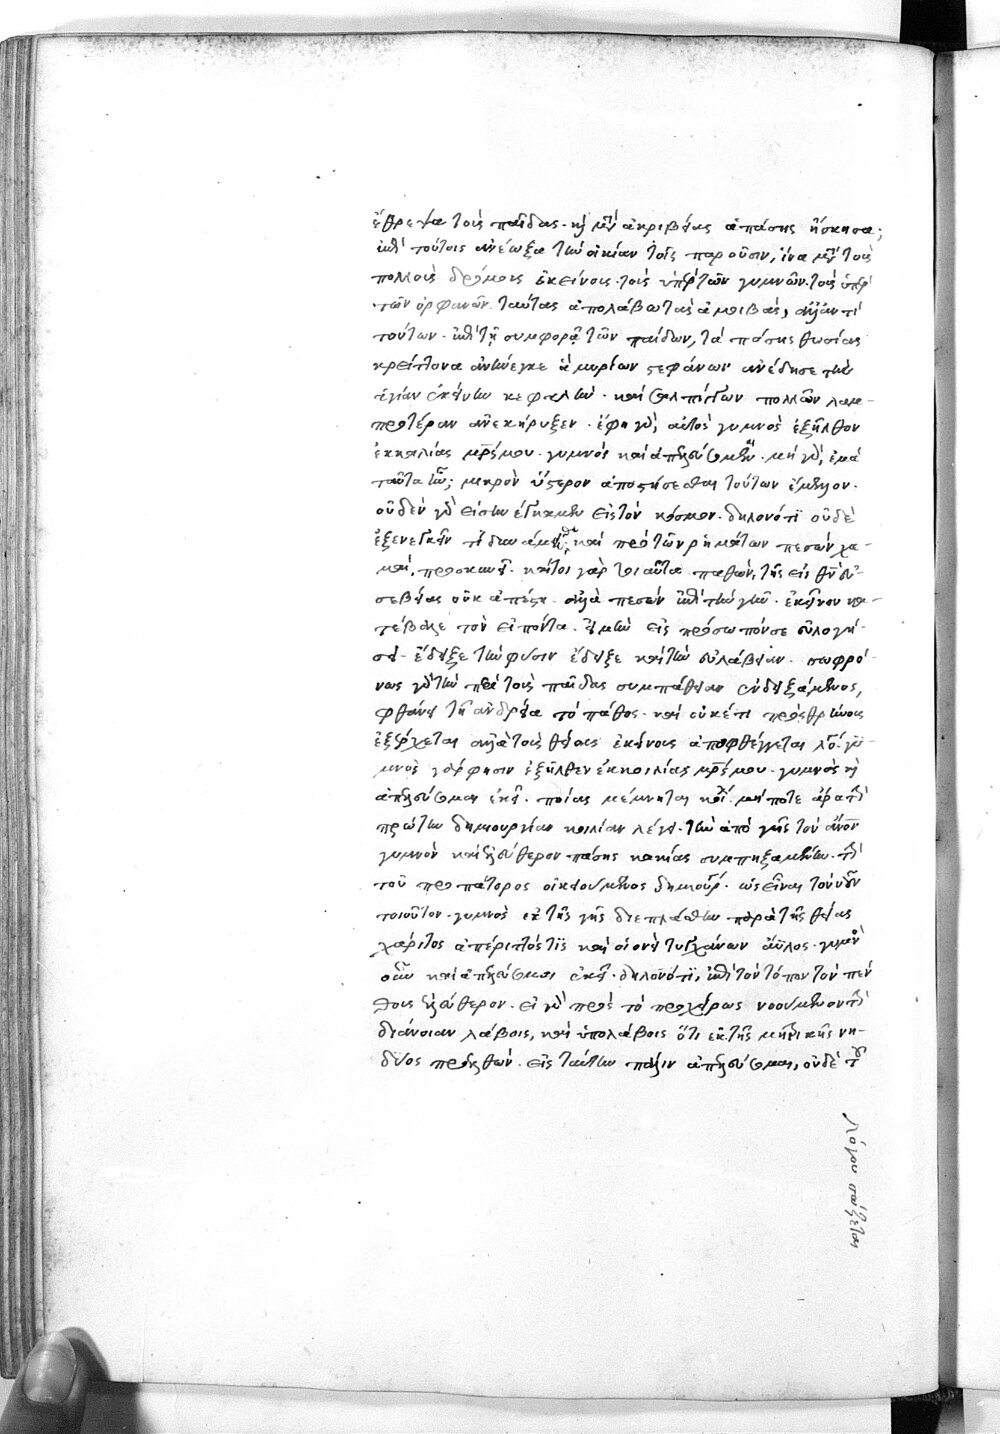 ἔθρεψα τοὺς παῖδας. καὶ μετὰ ἀκριβείας ἁπάσης ἤσκησα;
ἐπὶ τούτοις ἀνέωξα τὴν οἰκίαν τοῖς παροῦσιν, ἵνα μετὰ τοὺς
πολλοὺς δρόμους ἐκείνους. τοὺς ὑπὲρ τῶν γυμνῶν. τοὺς ὑπὲρ
τῶν ὀρφανῶν. ταύτας ἀπολάβω τὰς ἀμοιβάς, ἀλλ' ἀντὶ
τούτων. ἐπὶ τῇ συμφορᾷ τῶν παίδων, τὰ πάσης θυσίας
κρείττονα ἀνήνεγκε καὶ μυρίων στεφάνων ἀνέδησε τὴν
ἁγίαν ἐκείνην κεφαλήν. καὶ ἐλπίδων πολλῶν λαμ-
προτέραν ἀνεκήρυξεν. ἔφη γὰρ, αὐτὸς γυμνὸς ἐξῆλθον
ἐκ κοιλίας μητρός μου. γυμνὸς καὶ ἀπελεύσομαι. μὴ γὰρ, ἐμὰ
ταῦτα ἦν; μικρὸν ὕστερον ἀποστήσεσθαι τούτων ἔμελλον.
οὐδὲν γὰρ εἰσηνέγκαμεν εἰς τὸν κόσμον. δηλονότι οὐδὲ
ἐξενεγκεῖν τί δυνάμεθα. καὶ πρὸ τῶν ῥημάτων πεσὼν χα-
μαὶ, προσκυνεῖ. καίτοι γὰρ τοιαῦτα παθὼν, τῆς εἰς θεὸν εὐ-
σεβείας οὐκ ἀπέστη. ἀλλὰ πεσὼν ἐπὶ τὴν γῆν. ἐκεῖνον κα-
τέβαλε τὸν εἰπόντα. ἦ μὴν εἰς πρόσωπόν σε εὐλογή-
σει. ἔδειξε τὴν φύσιν ἔδειξε καὶ τὴν εὐλάβειαν. σωφρό-
νως γὰρ τὴν περὶ τοὺς παῖδας συμπάθειαν ἐνδειξάμενος,
φθάνει τῇ ἀνδρείᾳ τὸ πάθος. καὶ οὐκέτι πρὸς θρήνους
ἐξέρχεται ἀλλὰ τοὺς θείους ἐκείνους ἀποφθέγγεται λόγους. γυ-
μνὸς γάρ φησιν ἐξῆλθεν ἐκ κοιλίας μητρός μου. γυμνὸς καὶ
ἀπελεύσομαι ἐκεῖ. ποίας μέμνηται κοιλίας. μήποτε ἄρα τὴν
πρώτην δημιουργίαν κοιλίαν λέγει. τὴν ἀπὸ γῆς τὸν ἄνθρωπον
γυμνὸν καὶ ἐλεύθερον πάσης κακίας συμπηξαμένην. τὰ
τοῦ προπάτορος οἰκειούμενος δημιουργίας. ὡς εἶναι τὸν νοῦν
τοιοῦτον. γυμνὸς ἐκ τῆς γῆς διεπλάσθην παρὰ τῆς θείας
χάριτος ἀπέριττός τις καὶ οἱονεὶ τυγχάνων ἄϋλος. γυμνὸς
οὖν καὶ ἀπελεύσομαι ἐκεῖ. δηλονότι, ἐπὶ τὸν τόπον τὸν πέν-
θους ἐλεύθερον. εἰ γὰρ πρὸς τὸ προχείρως νοούμενον τὴν
διάνοιαν λάβοις, καὶ ὑπολάβοις ὅτι ἐκ τῆς μητρικῆς νη-
δύος προελθὼν. εἰς ταύτην πάλιν ἀπελεύσομαι, οὐδὲ τοῦ
λόγου παύσεται